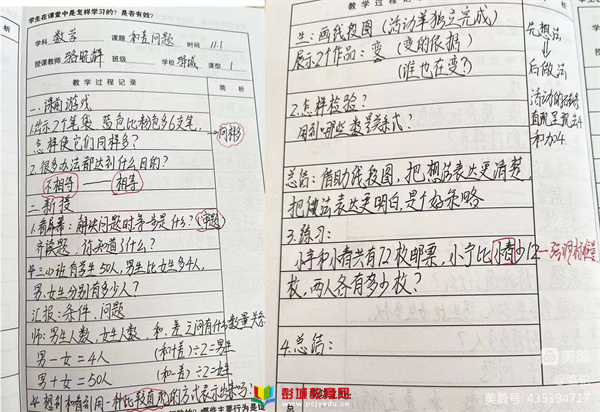 学生在课堂中是怎样学习的？是否有效？
学科 数学 课题 和差问题 时间 11.1
授课教师 班级 学校 课型 1
教学过程记录 简析
一、课前游戏
1.出示2个笔袋 蓝色比粉色多6支笔，
怎样使它们同样多？ 同样多
2.很多办法都达到什么目的？
不相等——相等
二、新授
1.看屏幕：解决问题时第一步是什么？审题
齐读题，你知道了什么？
四三小班有学生50人，男生比女生多4人，
男、女生分别有多少人？
汇报：条件、问题
师：男生人数，女生人数，和、差之间有什么数量关系
男－女＝4人 (和+差)÷2＝男生
男＋女＝50人 (和-差)÷2＝女生
教学过程记录
生：画线段图（活动单独立完成）
展示2个作品：变（变的依据）
（谁也在变？）
2.怎样检验？
用到哪些数量关系式？
总结：借助线段图，把想法表达更清楚，
把做法表达更明白，是个好策略
3.练习：
小宁和小春共有72枚邮票，小宁比小春少12
枚，两人各有多少枚？
4.总结：
先想法
↓
后做法
析
彭城教育网
www.pcjyedu.cn
美篇
美篇号：435394717